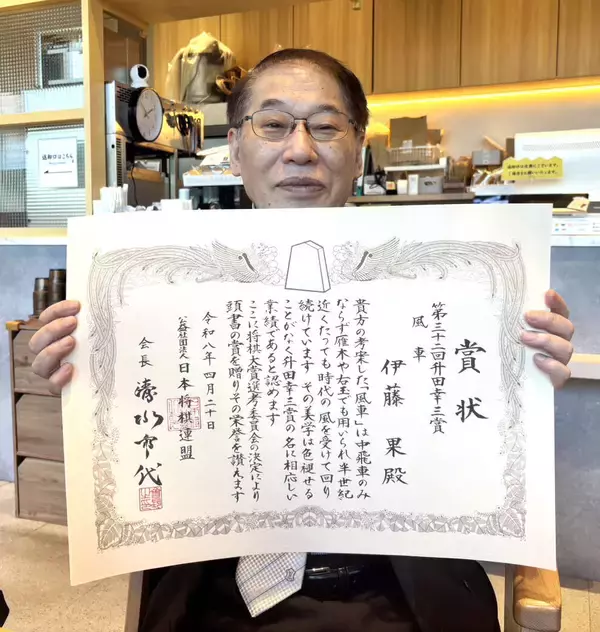 賞状
第三十二回升田幸三賞
風車
伊藤 果 殿
貴方の考案した「風車」は中飛車のみ
ならず雁木や右玉でも用いられ半世紀
近くたっても時代の風を受けて回り
続けています その美学は色褪せる
ことがなく升田幸三賞の名に相応しい
業績であると認めます
ここに将棋大賞選考委員会の決定により
頭書の賞を贈りその栄誉を讃えます
令和八年四月二十日
公益社団法人 日本将棋連盟
会長 清水市代
返却口はこちら